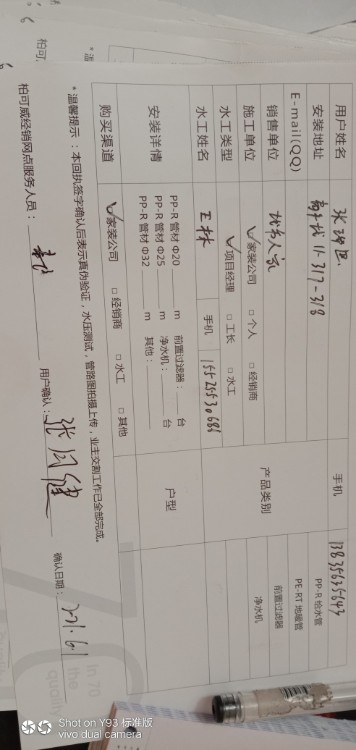 用户姓名
手机 13835635643
安装地址 11-317-318
PP-R 给水管
E-mail(QQ)
PE-RT 地暖管
销售单位
产品类别
前置过滤器
施工单位 ✓家装公司 □ 个人 □ 经销商
净水机
水工类型 ✓项目经理 □ 工长 □ 水工
水工姓名 王林 手机
安装详情
PP-R 管材 Φ20 m 前置过滤器: 台
PP-R 管材 Φ25 m 净水机: 台
PP-R 管材 Φ32 m 其他:
户型
购买渠道 ✓家装公司 □ 经销商 □ 水工 □ 其他
*温馨提示:本回执签字确认后表示真伪验证,水压测试,管路图拍摄上传,业主交割工作已全部完成。
柏可威经销网点服务人员: 用户确认: 张同健 确认日期: 221.6.1
in 70
the
柏可
Shot on Y93 标准版
vivo dual camera